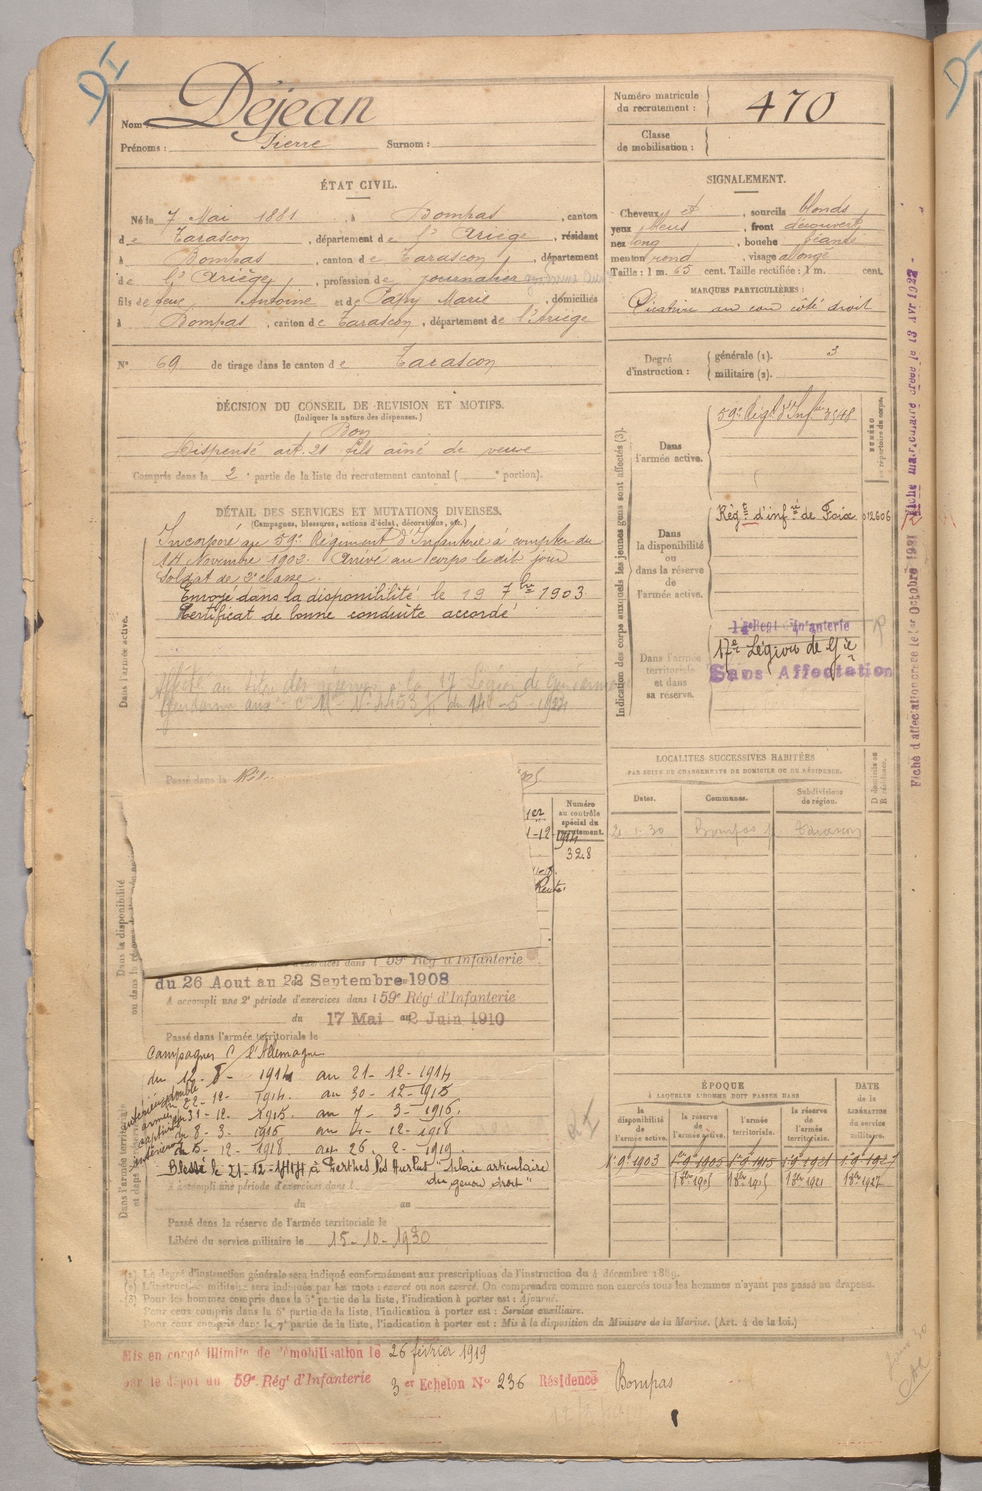 Nom Déjean
Prénoms : Pierre Surnom :
Numéro matricule du recrutement : 470
Classe de mobilisation :
ÉTAT CIVIL.
Né le 7 Mai 1881, à Bompas, canton
de Tarascon, département de l'Ariège, résidant
à Bompas, canton de Tarascon, département
de l'Ariège, profession de journalier
fils de feue Antoine et de Marie, domiciliés
à Bompas, canton de Tarascon, département de l'Ariège
N° 69 de tirage dans le canton de Tarascon
SIGNALEMENT.
Cheveux et, sourcils blonds
yeux bleus, front découvert
nez long, bouche
menton rond, visage allongé
Taille : 1 m. 63 cent. Taille rectifiée : 1 m. cent.
MARQUES PARTICULIÈRES :
Cicatrice au cou côté droit
Degré d'instruction : générale (1). 3
militaire (2).
DÉCISION DU CONSEIL DE REVISION ET MOTIFS.
(Indiquer la nature des dispenses.)
Bon
Dispensé art. 21 fils aîné de veuve
Compris dans la 2e partie de la liste du recrutement cantonal ( e portion).
DÉTAIL DES SERVICES ET MUTATIONS DIVERSES.
(Campagnes, blessures, actions d'éclat, décorations, etc.)
Dans l'armée active.
Incorporé au 59e Régiment d'Infanterie à compter du
14 Novembre 1902. Arrivé au corps le dit jour
Soldat de 2e classe.
Envoyé dans la disponibilité le 19 7bre 1903
Certificat de bonne conduite accordé
Affecté au titre des réserves à la 17 Légion de
Passé dans la
Indication des corps auxquels les jeunes gens sont affectés (3).
Dans l'armée active.
59e Régt d'Infrie 3548
NUMÉRO au répertoire du corps.
Dans la disponibilité ou dans la réserve de l'armée active.
Régt d'infrie de Foix 012606
Dans l'armée territoriale et dans sa réserve.
Infanterie
17e Légion de Gie
Sans Affectation
Fiche d'affectation créée le 1er Octobre 1921
Fiche matriculaire créée le 13 Avr 1922
LOCALITES SUCCESSIVES HABITÉES
PAR SUITE DE CHANGEMENTS DE DOMICILE OU DE RÉSIDENCE.
Dates. Communes. Subdivisions de région. D domicile ou R résidence.
2 1 30 Bompas Tarascon
Numéro au contrôle spécial du recrutement.
328
Dans la disponibilité
d'exercices dans l 59e Rég d'Infanterie
du 26 Aout au 22 Septembre 1908
A accompli une 2e période d'exercices dans l 59e Régt d'Infanterie
du 17 Mai au 2 Juin 1910
Passé dans l'armée territoriale le
Campagnes C/ l'Allemagne
du 12 - 8 - 1914 au 21 - 12 - 1914
22 - 12 - 1914. au 30 - 12 - 1915
31 - 12. 1915. au 7 - 3 - 1916.
8 - 3 - 1916 au 4 - 12 - 1918
5 - 12 - 1918 au 26 - 2 - 1919.
Blessé le 21-12-1914 à Perthes les Hurlus "Plaie articulaire
du genou droit"
A accompli une période d'exercices dans l
du au
Passé dans la réserve de l'armée territoriale le
Libéré du service militaire le 15-10-1930
ÉPOQUE
À LAQUELLE L'HOMME DOIT PASSER DANS
la disponibilité de l'armée active. la réserve de l'armée active. l'armée territoriale. la réserve de l'armée territoriale.
DATE de la LIBÉRATION du service militaire.
1er 9 1903 1er 9 1905 1er 9 1915 1er 9 1921 1er 9 1927
1905 1915 1921 1927
(1) Le degré d'instruction générale sera indiqué conformément aux prescriptions de l'instruction du 4 décembre 1889.
(2) L'instruction militaire sera indiquée par les mots : exercé ou non exercé. On comprendra comme non exercés tous les hommes n'ayant pas passé au drapeau.
(3) Pour les hommes compris dans la 5e partie de la liste, l'indication à porter est : Ajourné.
Pour ceux compris dans la 6e partie de la liste, l'indication à porter est : Service auxiliaire.
Pour ceux compris dans la 7e partie de la liste, l'indication à porter est : Mis à la disposition du Ministre de la Marine. (Art. 4 de la loi.)
Mis en congé illimité de démobilisation le 26 février 1919
par le dépôt du 59e Régt d'Infanterie 3er Echelon N° 236 Résidence Bompas